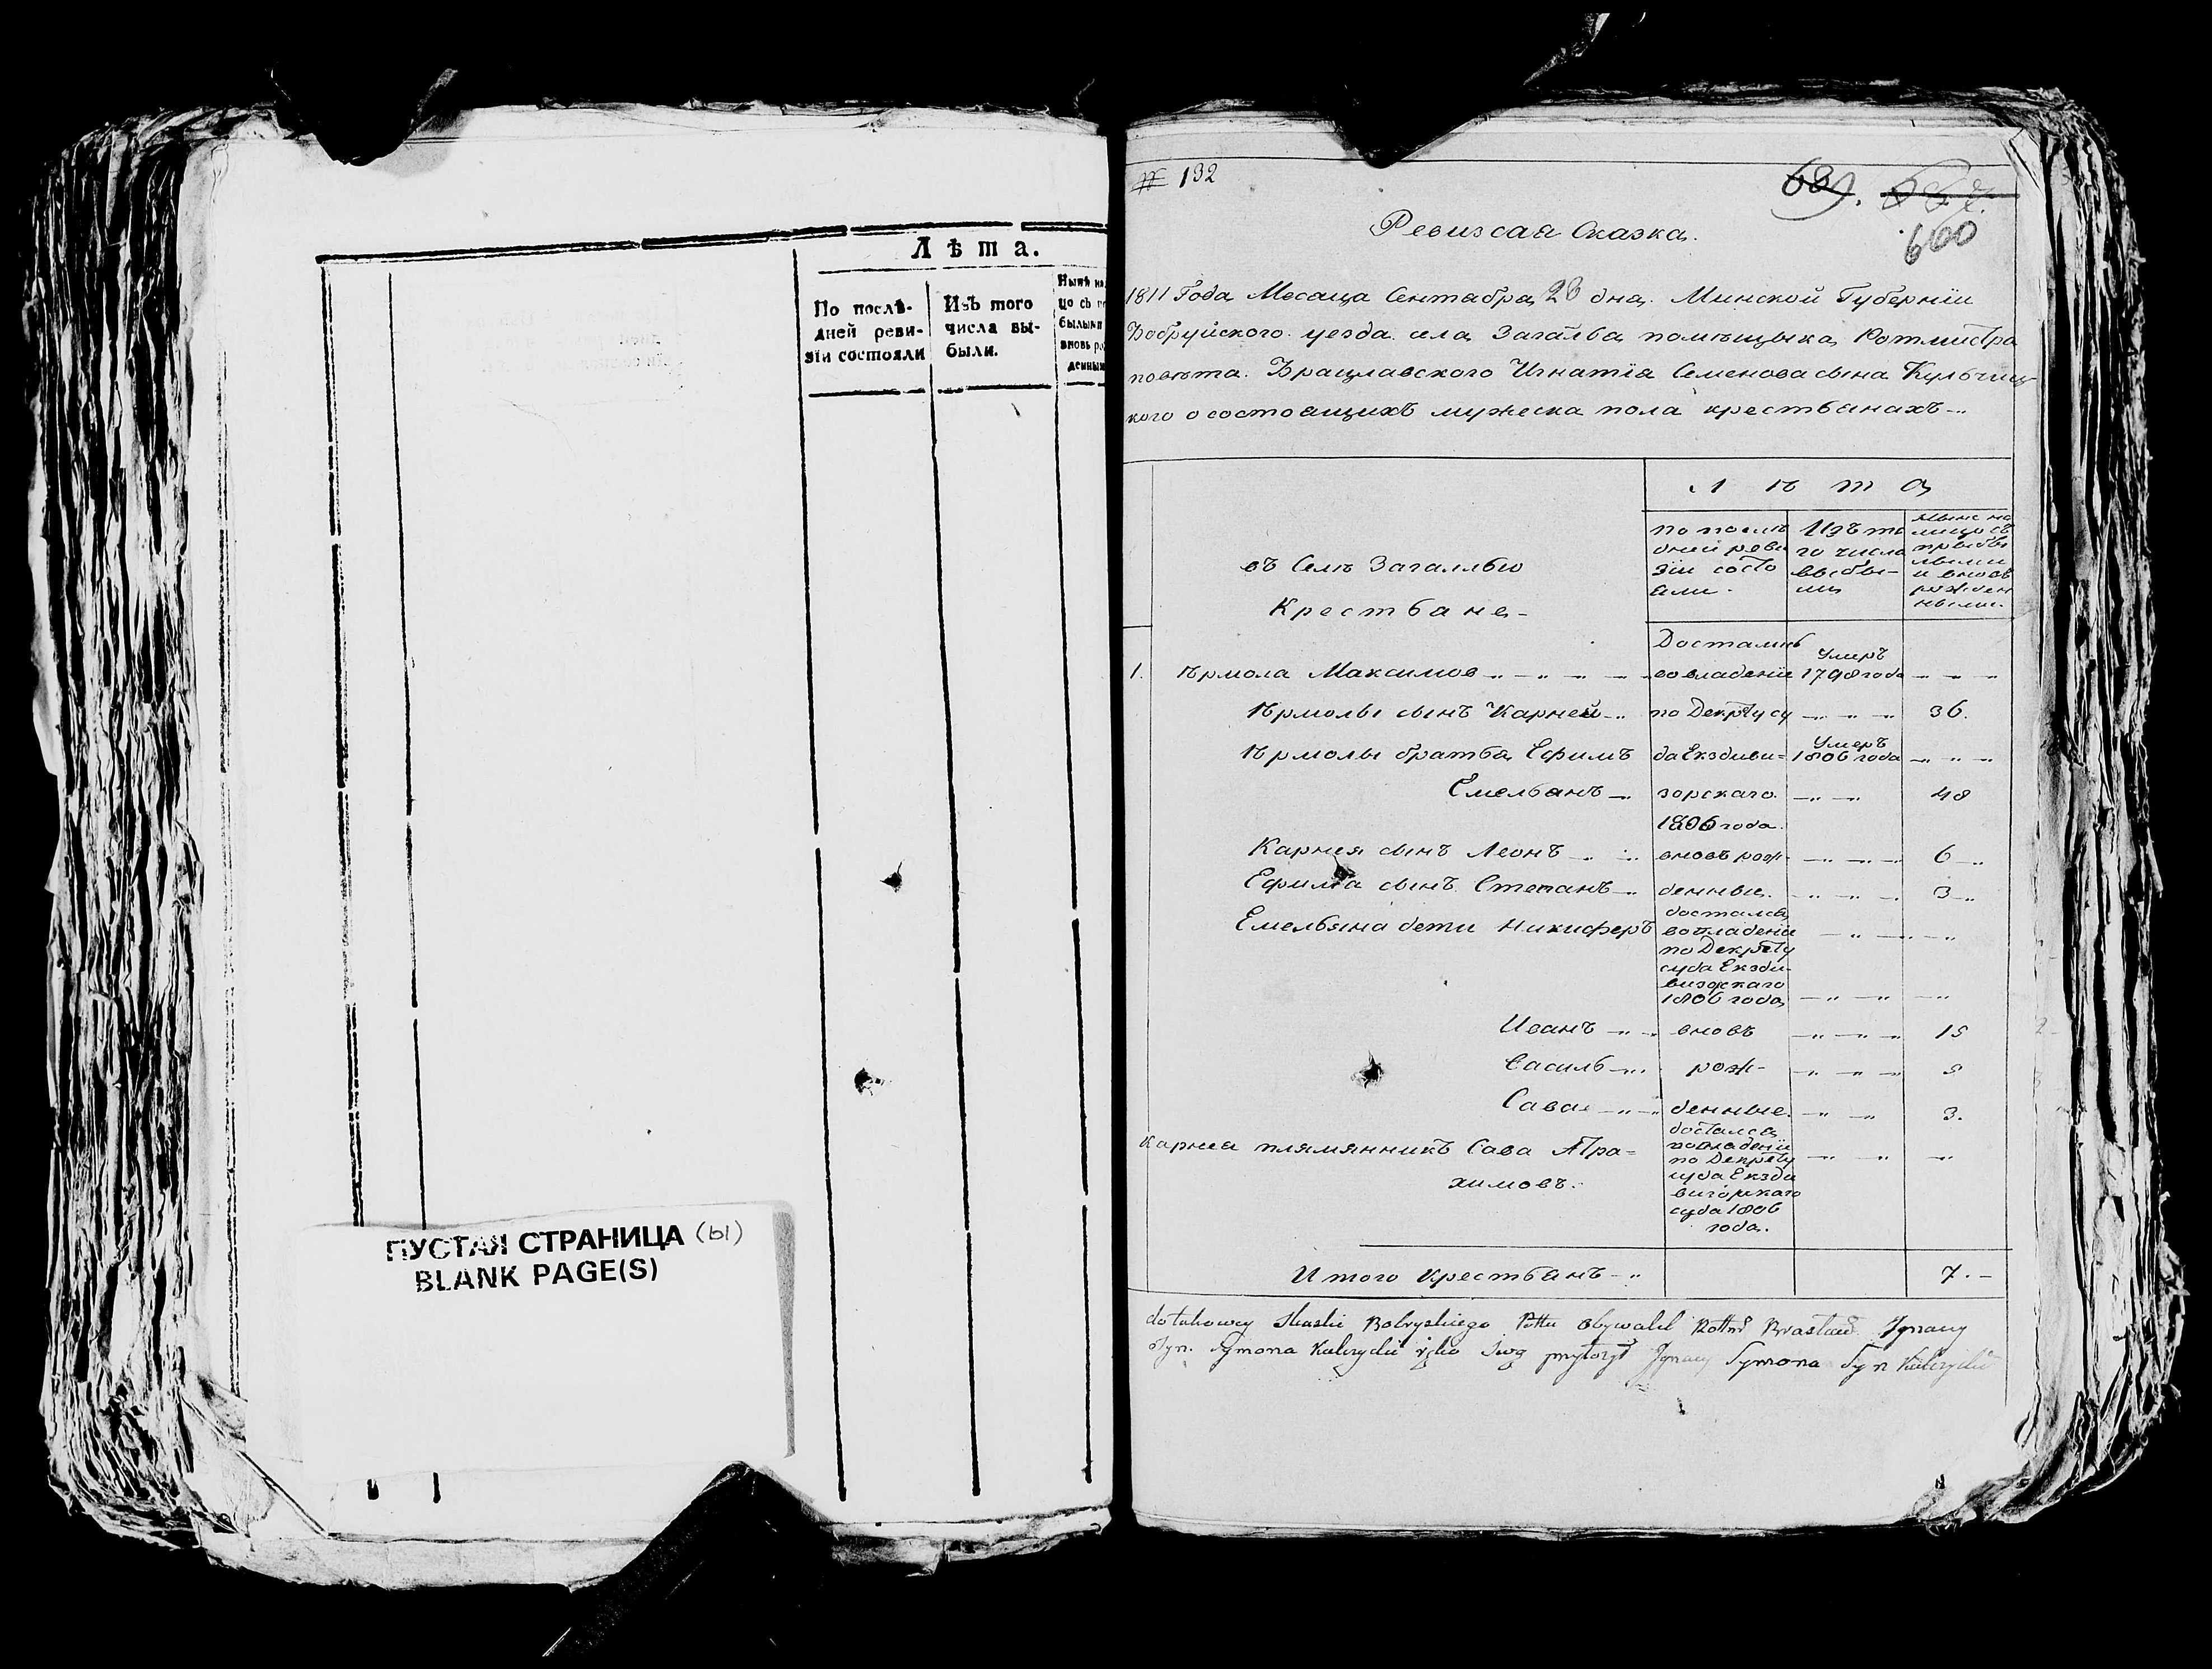 Лѣта.
По послѣ-
дней реви-
зіи состояли
Изъ того
числа вы-
были.
ПУСТАЯ СТРАНИЦА (ы)
BLANK PAGE(S)
№ 132
660
Ревизсая Сказка.
1811 Года Месаца Сентабра 28 дна. Минской Губерніи
Бобруйского уезда села Загалва помѣщыка Ротмистра
повѣта Брацлавского Игнатіа Семенова сына Кульчиц-
кого о состоащихъ мужеска пола крестьанахъ
Л ѣ т а
въ Селѣ Загаллью
Крестьане
по послѣ
дней реви
зіи состо
али.
Изъ то
го числа
выбы-
ли
Ныне на
лицо съ
прыбы
лыми
и вновь
рожден
ными.
1. Ѣрмола Максимов
Достались
во владеніе
Умеръ
1798 года
Ѣрмолы сынъ Карней по Декрету су 36.
Ѣрмолы братьа Ефимъ да Екздиви= Умеръ 1806 года
Емельанъ зорскаго. 48
1806 года.
Карнея сынъ Леонъ вновь рож 6
Ефима сынъ Степанъ денные. 3
Емельяна дети Никиферъ
досталса
во владеніе
по Декрету
суда Екзди
визорскаго
1806 года
Иванъ вновь 15
Василь рож- 5
Сава денные. 3.
Карнеа плямянникъ Сава Атра=
химовъ.
досталса
во владеніе
по Декрету
суда Екзди
визорскаго
суда 1806
года.
Итого Крестьанъ 7.
Bobryskiego Pttu Obywatel Rottm Brasław Ignacy
Syn Symona rękę Swą Ignacy Symona Syn